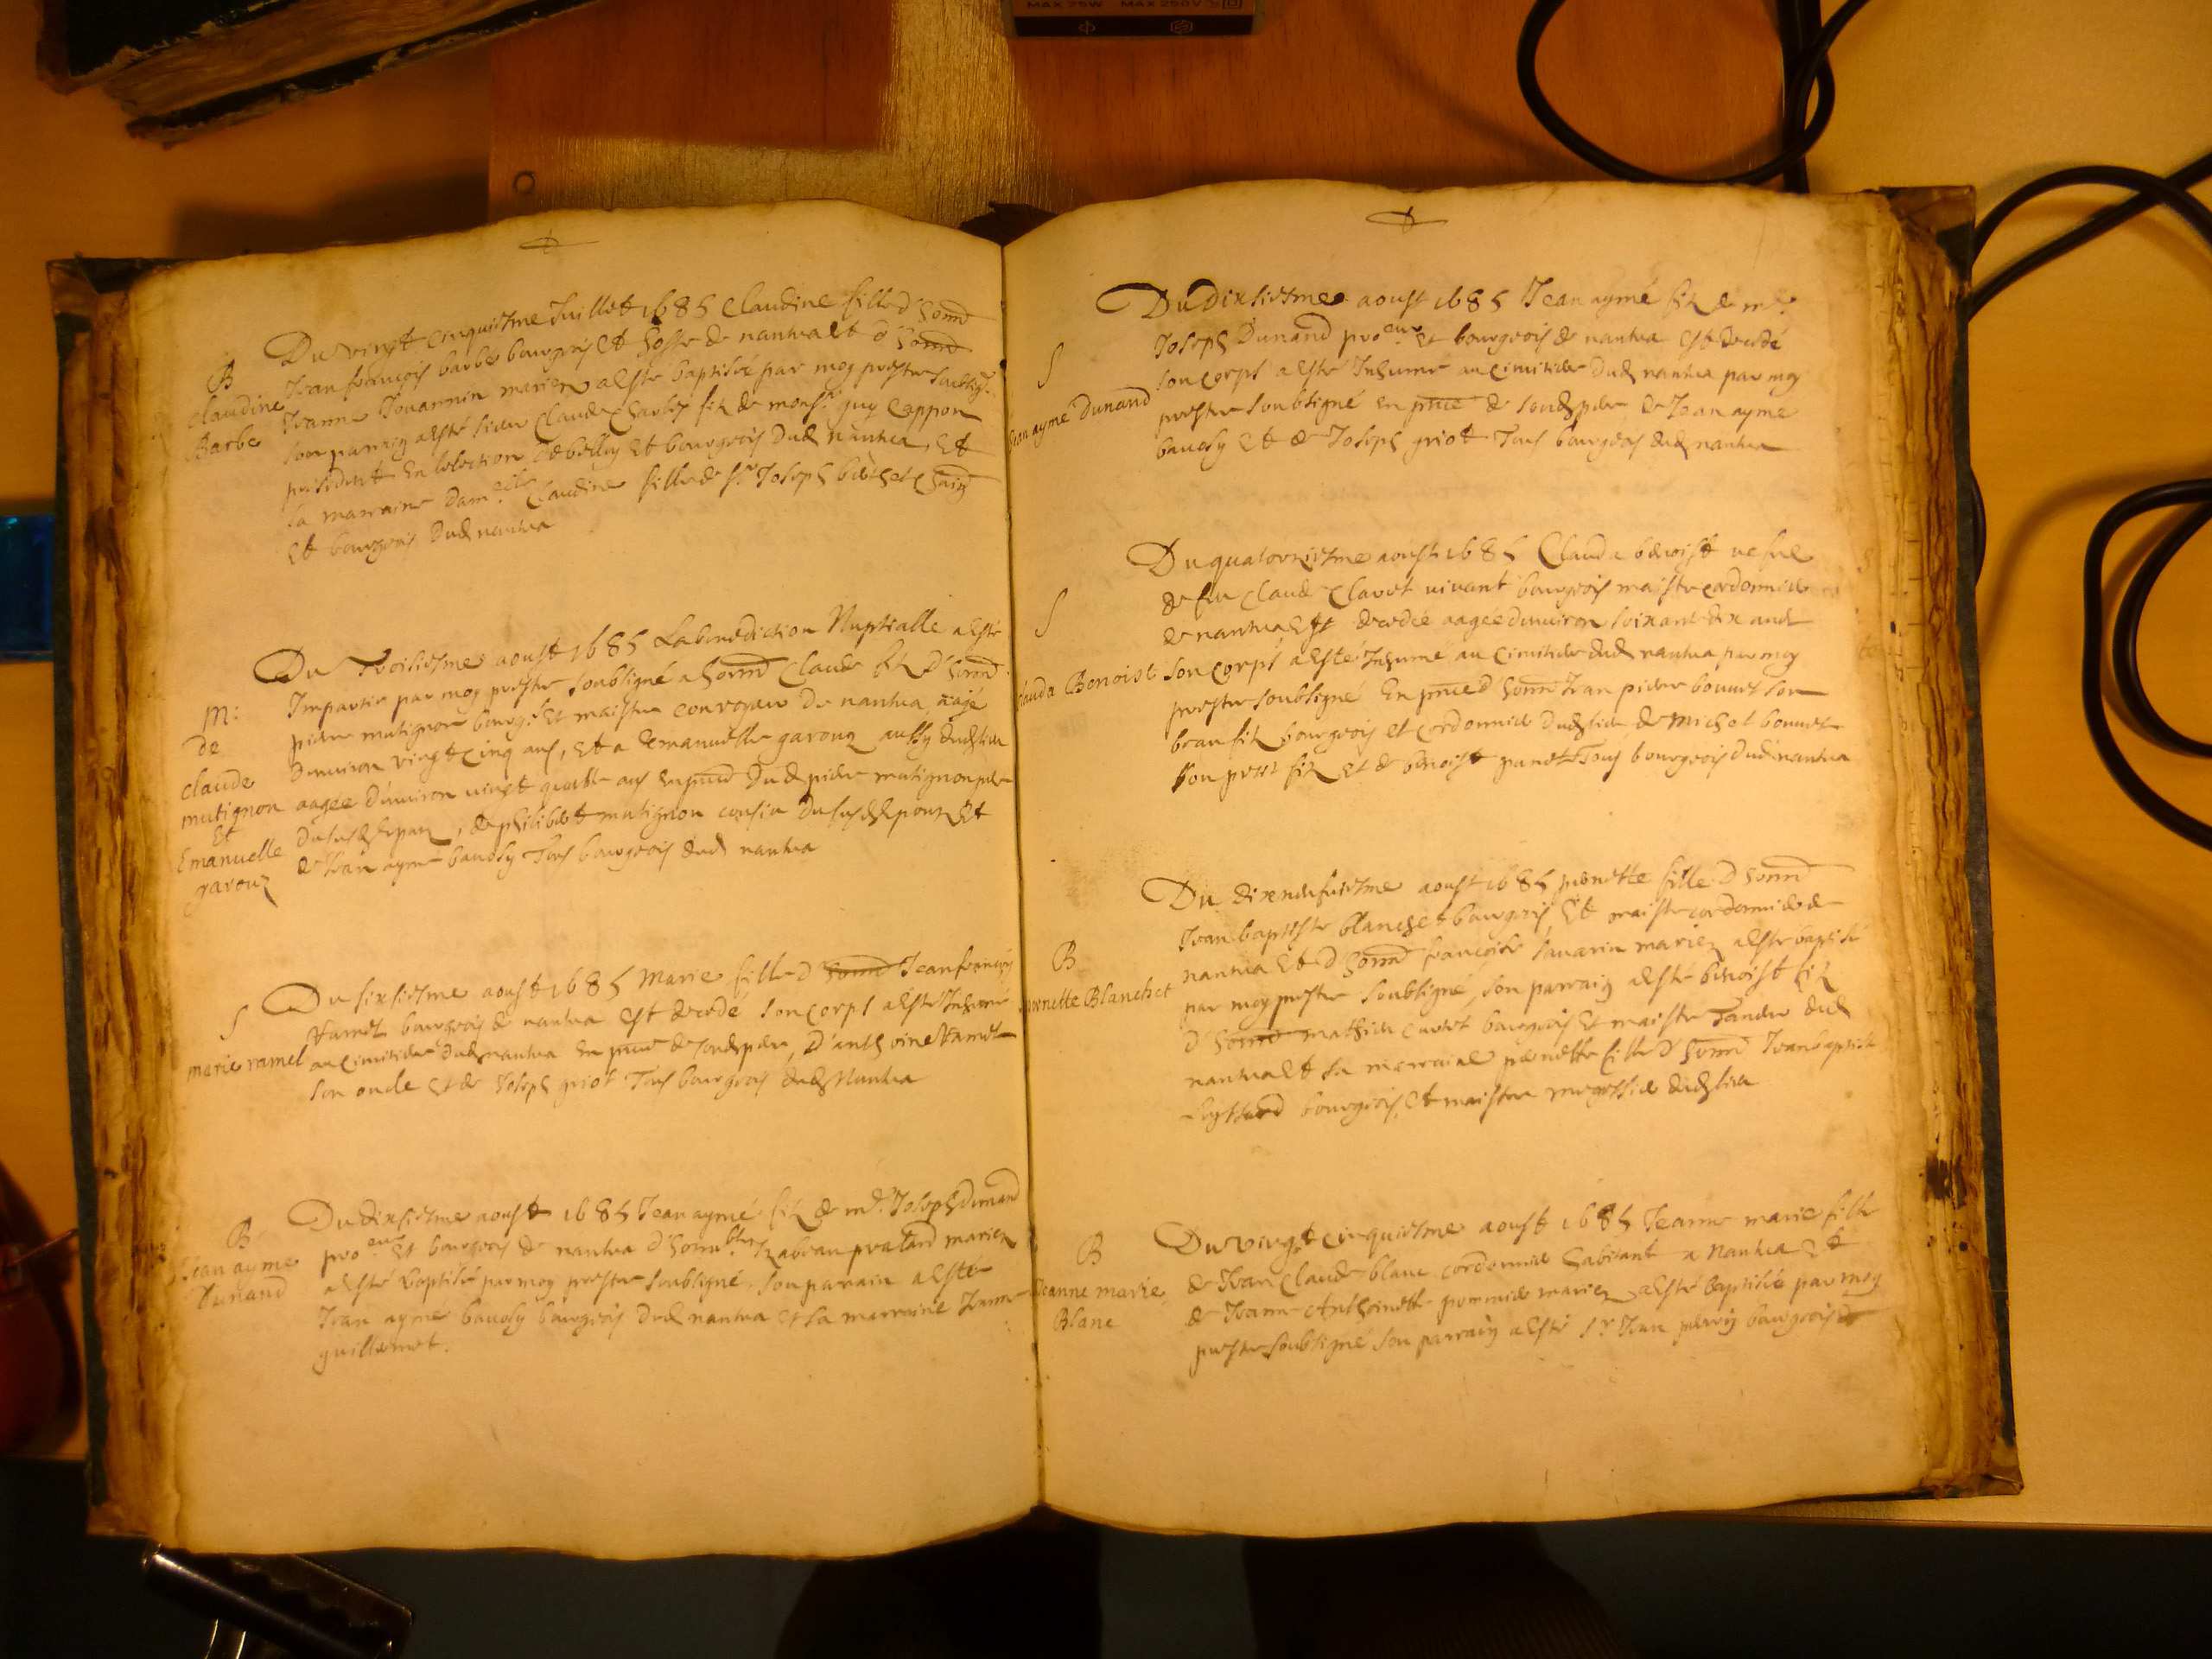 MAX 75W MAX 250V
B
Claudine
Barbe
Du vingt cinquiesme Juillet 1685 Claudine fille d'honn
Jean françois barbe bourgeois et hoste de nantua et d'honn
Jeanne Jouannin mariez a esté baptisée par moy prestre soubsigné
son parrain a esté sieur Claude Charles filz de mons.r guy Cappon
president En lelection de belley Et bourgeois dud nantua, Et
sa marraine dam.elle Claudine fille de s.r Joseph
Et bourgeois dud nantua
M:
de
claude
mutignon
Et
Emanuelle
garouz
Du Troisiesme aoust 1685 La benediction Nuptialle a esté
Impartie par moy prestre soubsigné a honn Claude filz d'honn
pierre mutignon bourg.s Et maistre conroyeur de nantua aagé
d'environ vingt cinq ans, Et a Emanuelle garouz aussy dud lieu
aagée d'environ vingt quatre ans En pnce dud pierre mutignon pere
dususd Espouz, de philibert mutignon cousin dususd Espouz Et
de Jean ayme baudsy Tous bourgeois dud nantua
S
marie ramel
Du sixsiesme aoust 1685 Marie fille d honn Jean françois
Ramel bourgeois de nantua est decedé son corps a esté Inhumé
au cimitiere dud nantua En pnce de sondz pere, d'anthoine Ramel
son oncle Et de Joseph griot Tous bourgeois dud Nantua
B
Jean ayme
Dunand
Du dixsiesme aoust 1685 Jean aymé filz de m.e Joseph Dunand
pro.eur Et bourgeois de nantua d'honn.ble Izabeau pratard mariez
a esté baptisé par moy prestre soubsigné, son parrain a esté
Jean ayme baudsy bourgeois dud nantua Et sa marraine Jeanne
guillermet.
S
Jean ayme Dunand
Du dixsiesme aoust 1685 Jean aymé filz de m.e
Joseph Dunand pro.eur Et bourgeois de nantua Est decedé
son corps a esté Inhumé au cimitiere dud nantua par moy
prestre soubsigné En pnce de sondz pere de Jean ayme
baudsy Et de Joseph griot Tous bourgeois dud nantua
S
Clauda Benoist
Du quatorziesme aoust 1685 Clauda benoist vefve
de feu Claude Clavet vivant bourgeois maistre cordonnier
de nantua, Est decedée aagée d'environ soixante dix ans
son corps a esté Inhumé au cimitiere dud nantua par moy
prestre soubsigné En pnce d honn Jean pierre bonnet son
beau filz bourgeois et cordonnier dud lieu de Michel bonnet
son petit filz Et de benoist Tous bourgeois dud nantua
B
pernette Blanchet
Du dixneufviesme aoust 1685 pernette fille d honn
Jean baptiste blanchet bourgeois Et maistre cordonnier de
nantua Et d honn françoise savarin mariez a esté baptisée
par moy prestre soubsigné, son parrain a esté benoist filz
d honn mathieu bourgeois Et maistre dud
nantua Et sa marraine pernette fille d honn Jean baptiste
bourgeois Et maistre dud lieu
B
Jeanne marie
Blanc
Du vingt cinquiesme aoust 1685 Jeanne marie fille
de Jean Claude blanc cordonnier habitant a Nantua Et
de Jeanne Anthoinette mariez a esté baptisée par moy
prestre soubsigné son parrain a esté s.r Jean bourgeois de